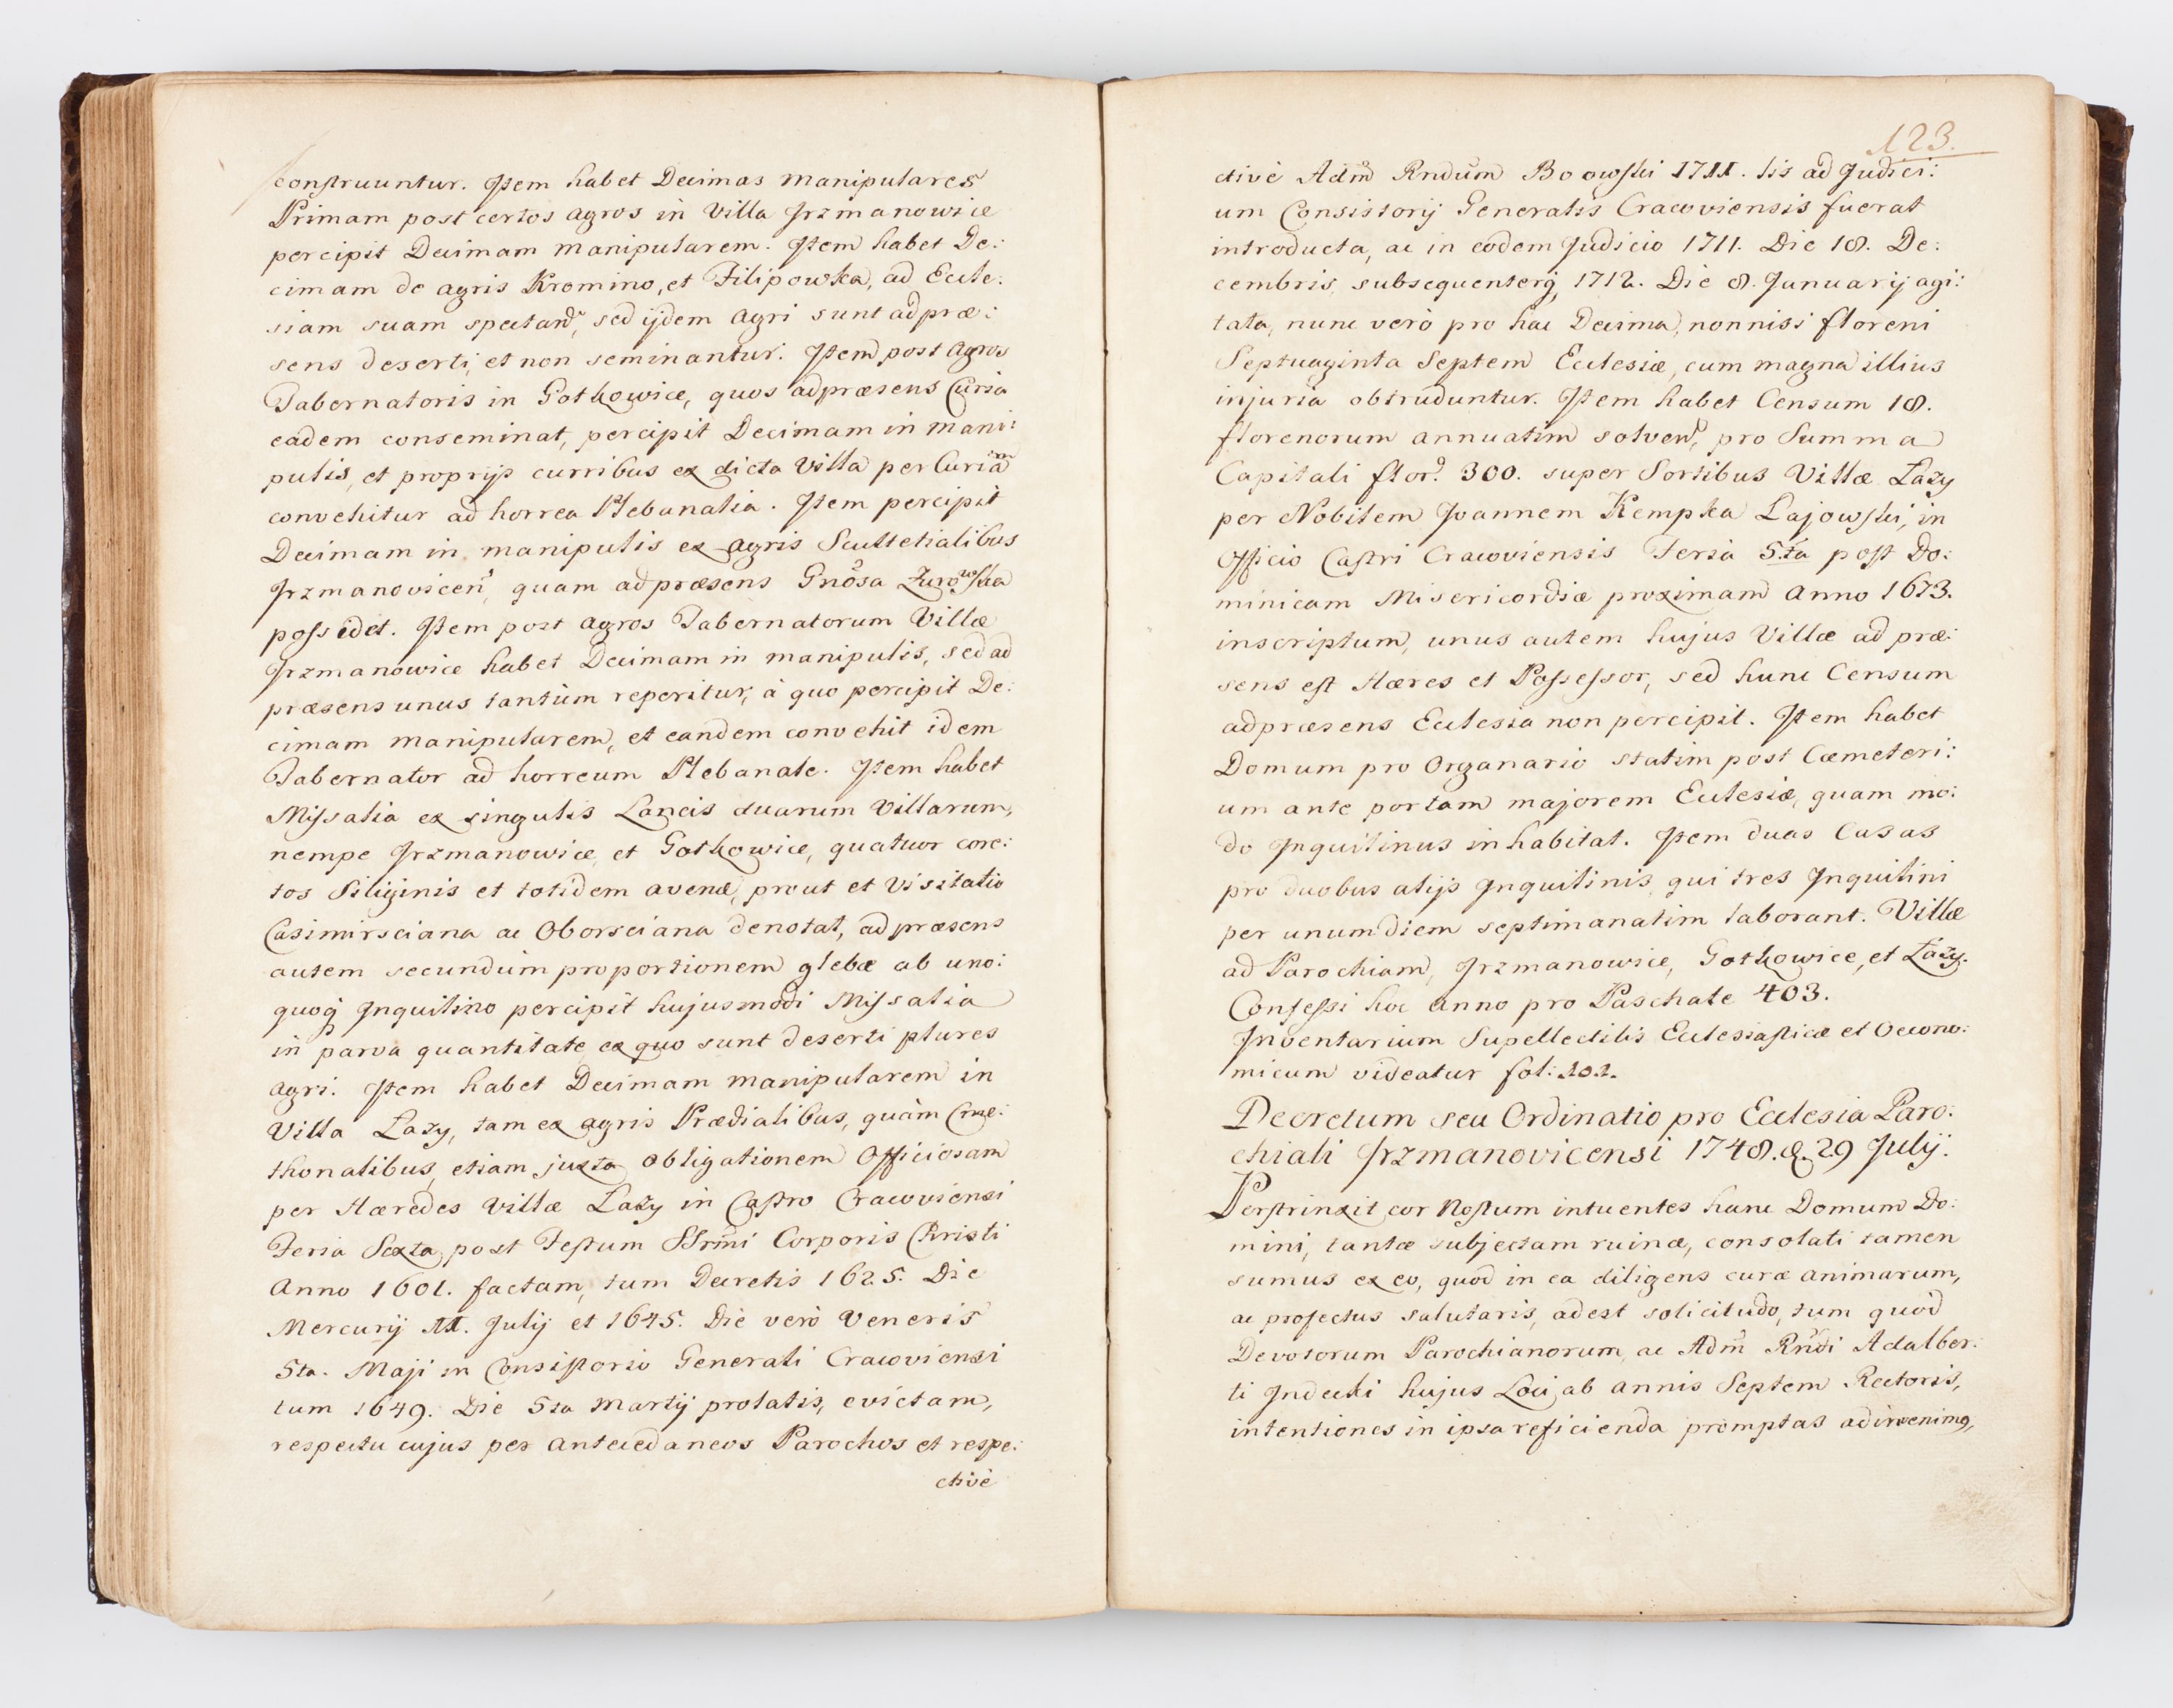 construuntur. Item habet Decimas manipulares
Primam post certos agros in Villa Jrzmanowice
percipit Decimam manipularem. Item habet De:
cimam de agris Kromino, et Filipowska, ad Eccle:
siam suam spectand, sed ijdem agri sunt ad præ:
sens deserti, et non seminantur. Item post agros
Tabernatoris in Gotkowice, quos ad præsens Curia
eadem conseminat, percipit Decimam in mani:
pulis, et proprijs curribus ex dicta Villa per Curiam
convehitur ad horrea Plebanalia. Item percipit
Decimam in manipulis ex agris Scultetialibus
Jrzmanovicen, quam ad præsens Gnosa Zurowska
possidet. Item post agros Tabernatorum Villæ
Jrzmanowice habet Decimam in manipulis, sed ad
præsens unus tantùm reperitur, à quo percipit De:
cimam manipularem, et eandem convehit idem
Tabernator ad horreum Plebanale. Item habet
Missalia ex singulis Laneis duarum Villarum,
nempe Jrzmanowice, et Gotkowice, quatuor core:
tos Siliginis et totidem avenæ, prout et Visitatio
Casimirsciana ac Oborsciana denotat, ad præsens
autem secundùm proportionem glebæ ab uno:
quoq Inquilino percipit hujusmodi Missalia
in parva quantitate, ex quo sunt deserti plures
agri. Item habet Decimam manipularem in
Villa Lazy, tam ex agris Prædialibus, quàm Cme:
thonalibus, etiam juxta obligationem Officiosam
per Hæredes Villæ Lazy in Castro Cracoviensi
Feria Sexta post Festum SSrmi Corporis Christi
Anno 1601. factam, tum Decretis 1625. Die
Mercurij 11. Julij et 1645. Die verò Veneris
5ta. Maji in Consistorio Generali Cracoviensi
tum 1649. Die 5ta Martij prolatis, evictam,
respectu cujus per antecedaneos Parochos et respe:
ctivè
123.
ctivè Adm Rndum Bo owski 1711. lis ad Judici:
um Consistorij Generalis Cracoviensis fuerat
introducta, ac in eodem Judicio 1711. Die 18. De:
cembris, subsequenterq, 1712. Die 8. Januarij agi:
tata, nunc verò pro hac Decima, nonnisi floreni
Septuaginta Septem Ecclesiæ, cum magna illius
injuria obtruduntur. Item habet Censum 18.
florenorum annuatim solven, pro Summa
Capitali flor. 300. super Sortibus Villæ Lazy
per Nobilem Joannem Kempka Lajowski, in
Officio Castri Cracoviensis Feria 5ta post Do:
minicam Misericordiæ proximam Anno 1673.
inscriptum, unus autem hujus Villæ ad præ:
sens est Hæres et Possessor, sed hunc Censum
ad præsens Ecclesia non percipit. Item habet
Domum pro Organario statim post Cæmeteri:
um ante portam majorem Ecclesiæ, quam mo:
do Inquilinus inhabitat. Item duas Casas
pro duobus alijs Inquilinis, qui tres Inquilini
per unum diem septimanatim laborant. Villæ
ad Parochiam, Jrzmanowice, Gotkowice, et Łazy.
Confessi hoc anno pro Paschate 403.
Inventarium Supellectilis Ecclesiasticæ et Oecono:
micum videatur fol: 101.
Decretum seu Ordinatio pro Ecclesia Paro:
chiali Jrzmanovicensi 1748. d. 29 Julij.
Perstrinxit cor Nostum intuentes hanc Domum Do:
mini, tantæ subjectam ruinæ, consolati tamen
sumus ex eo, quod in ea diligens curæ animarum,
ac profectus salutaris, adest solicitudo, tum quòd
Devotorum Parochianorum, ac Adm Rndi Adalber:
ti Indecki hujus Loci, ab annis Septem Rectoris,
intentiones in ipsa reficienda promptas adinvenimq,